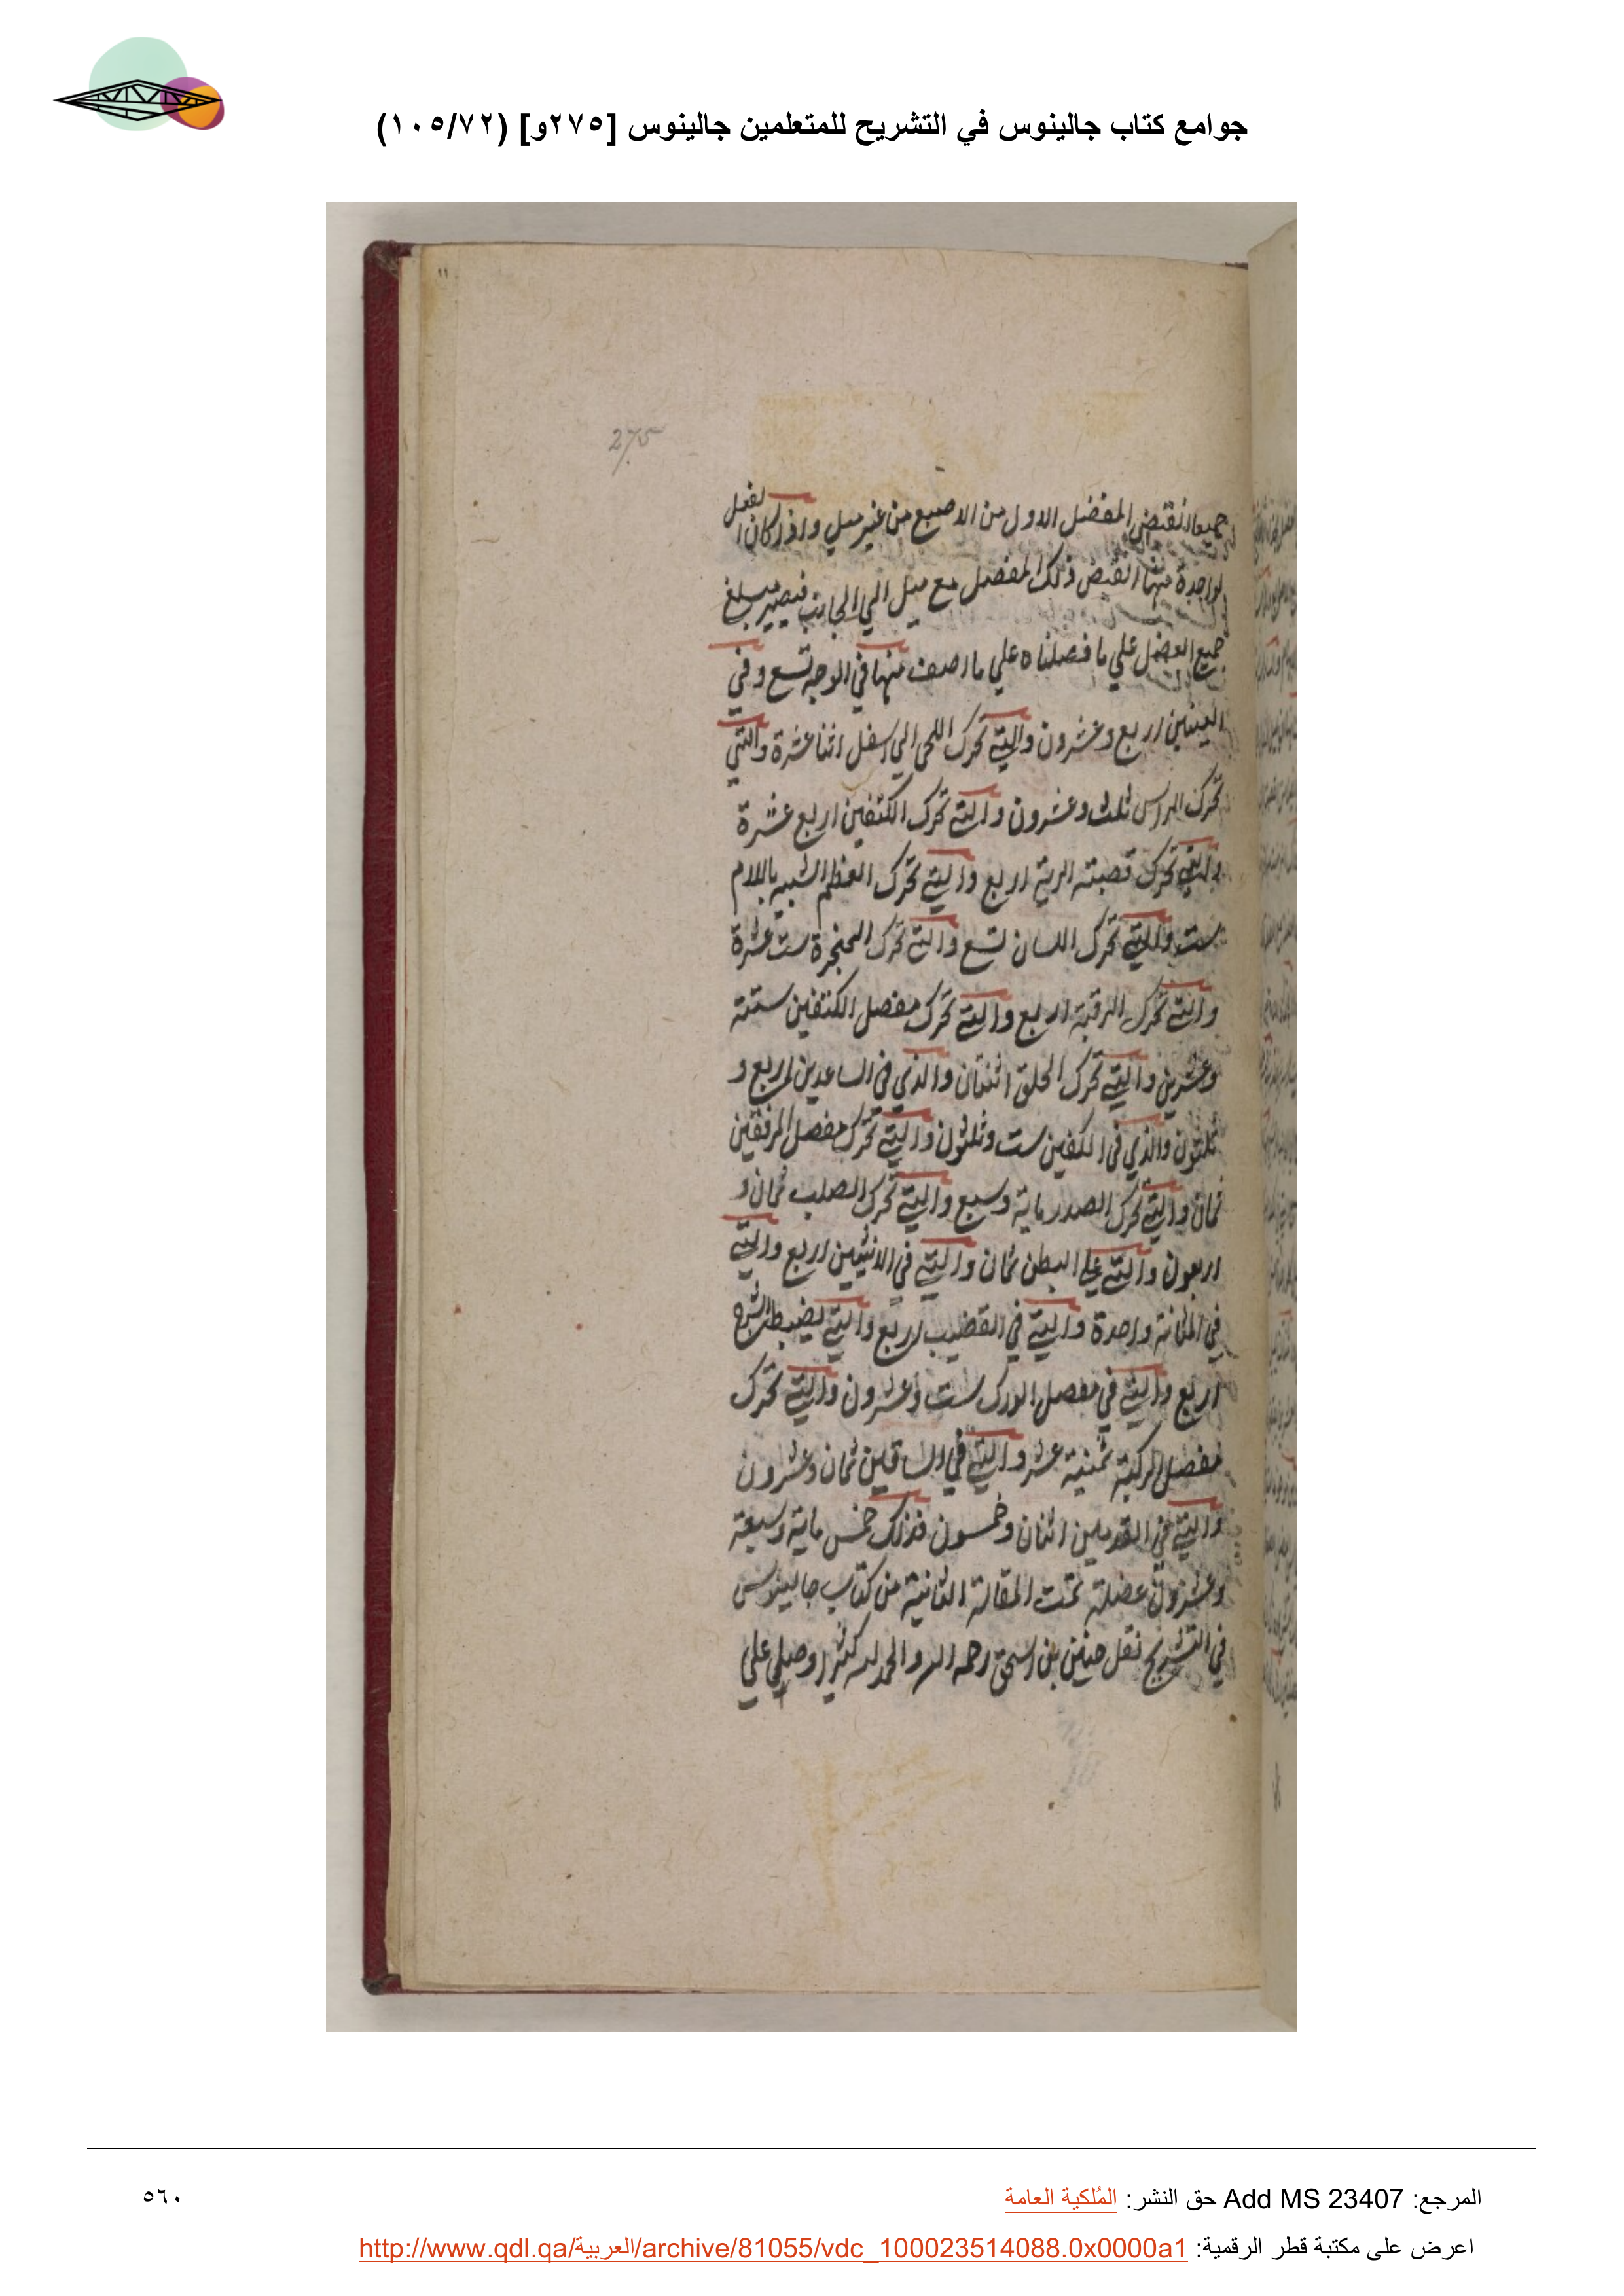 جوامع كتاب جالينوس في التشريح للمتعلمين جالينوس [٢٧٥و] (١٠٥/٧٢)
١١
275
جميعا انقبض المفصل الاول من الاصبع من غير ميل واذا كان الفعل
لواحدة منها انقبض ذلك المفصل مع ميل الي الجانب فيصير مبلغ
جميع العضل علي ما فصلناه علي ما اصف منها في الوجه تسع وفي
العينين اربع وعشرون والتي تحرك اللحي الي اسفل اثنا عشرة والتي
تحرك الراس ثلث وعشرون والتي تحرك الكتفين اربع عشرة
والتي تحرك قصبته الرية اربع والتي تحرك العظم الشبيه باللام
ست والتي تحرك اللسان تسع والتي تحرك الحنجرة ست عشرة
والتي تحرك الرقبة اربع والتي تحرك مفصل الكتفين ستة
وعشرين والتي تحرك الحلق اثنتان والذي في الساعدين اربع و
ثلثون والذي في الكفين ست وثلثون والتي تحرك مفصل المرفقين
ثمان والتي تحرك الصدر ماية وسبع والتي تحرك الصلب ثمان و
اربعون والتي علي البطن ثمان والتي في الانثيين اربع والتي
في المثانة واحدة والتي في القضيب اربع والتي يضبط الشرج
اربع والتي في مفصل الورك ست وعشرون والتي تحرك
مفصل الركبة ثمنية عشر والتي في الساقين ثمان وعشرون
والتي في القدمين اثنان وخمسون فذلك خمس ماية وسبعة
وعشرون عضلة تمت المقالة الثانية من كتاب جالينوس
في التشريح نقل حنين بن اسحق رحمه الله والحمد لله كثيرا وصلي علي
المرجع: Add MS 23407 حق النشر: المُلكية العامة
٥٦٠
اعرض على مكتبة قطر الرقمية: http://www.qdl.qa/العربية/archive/81055/vdc_100023514088.0x0000a1